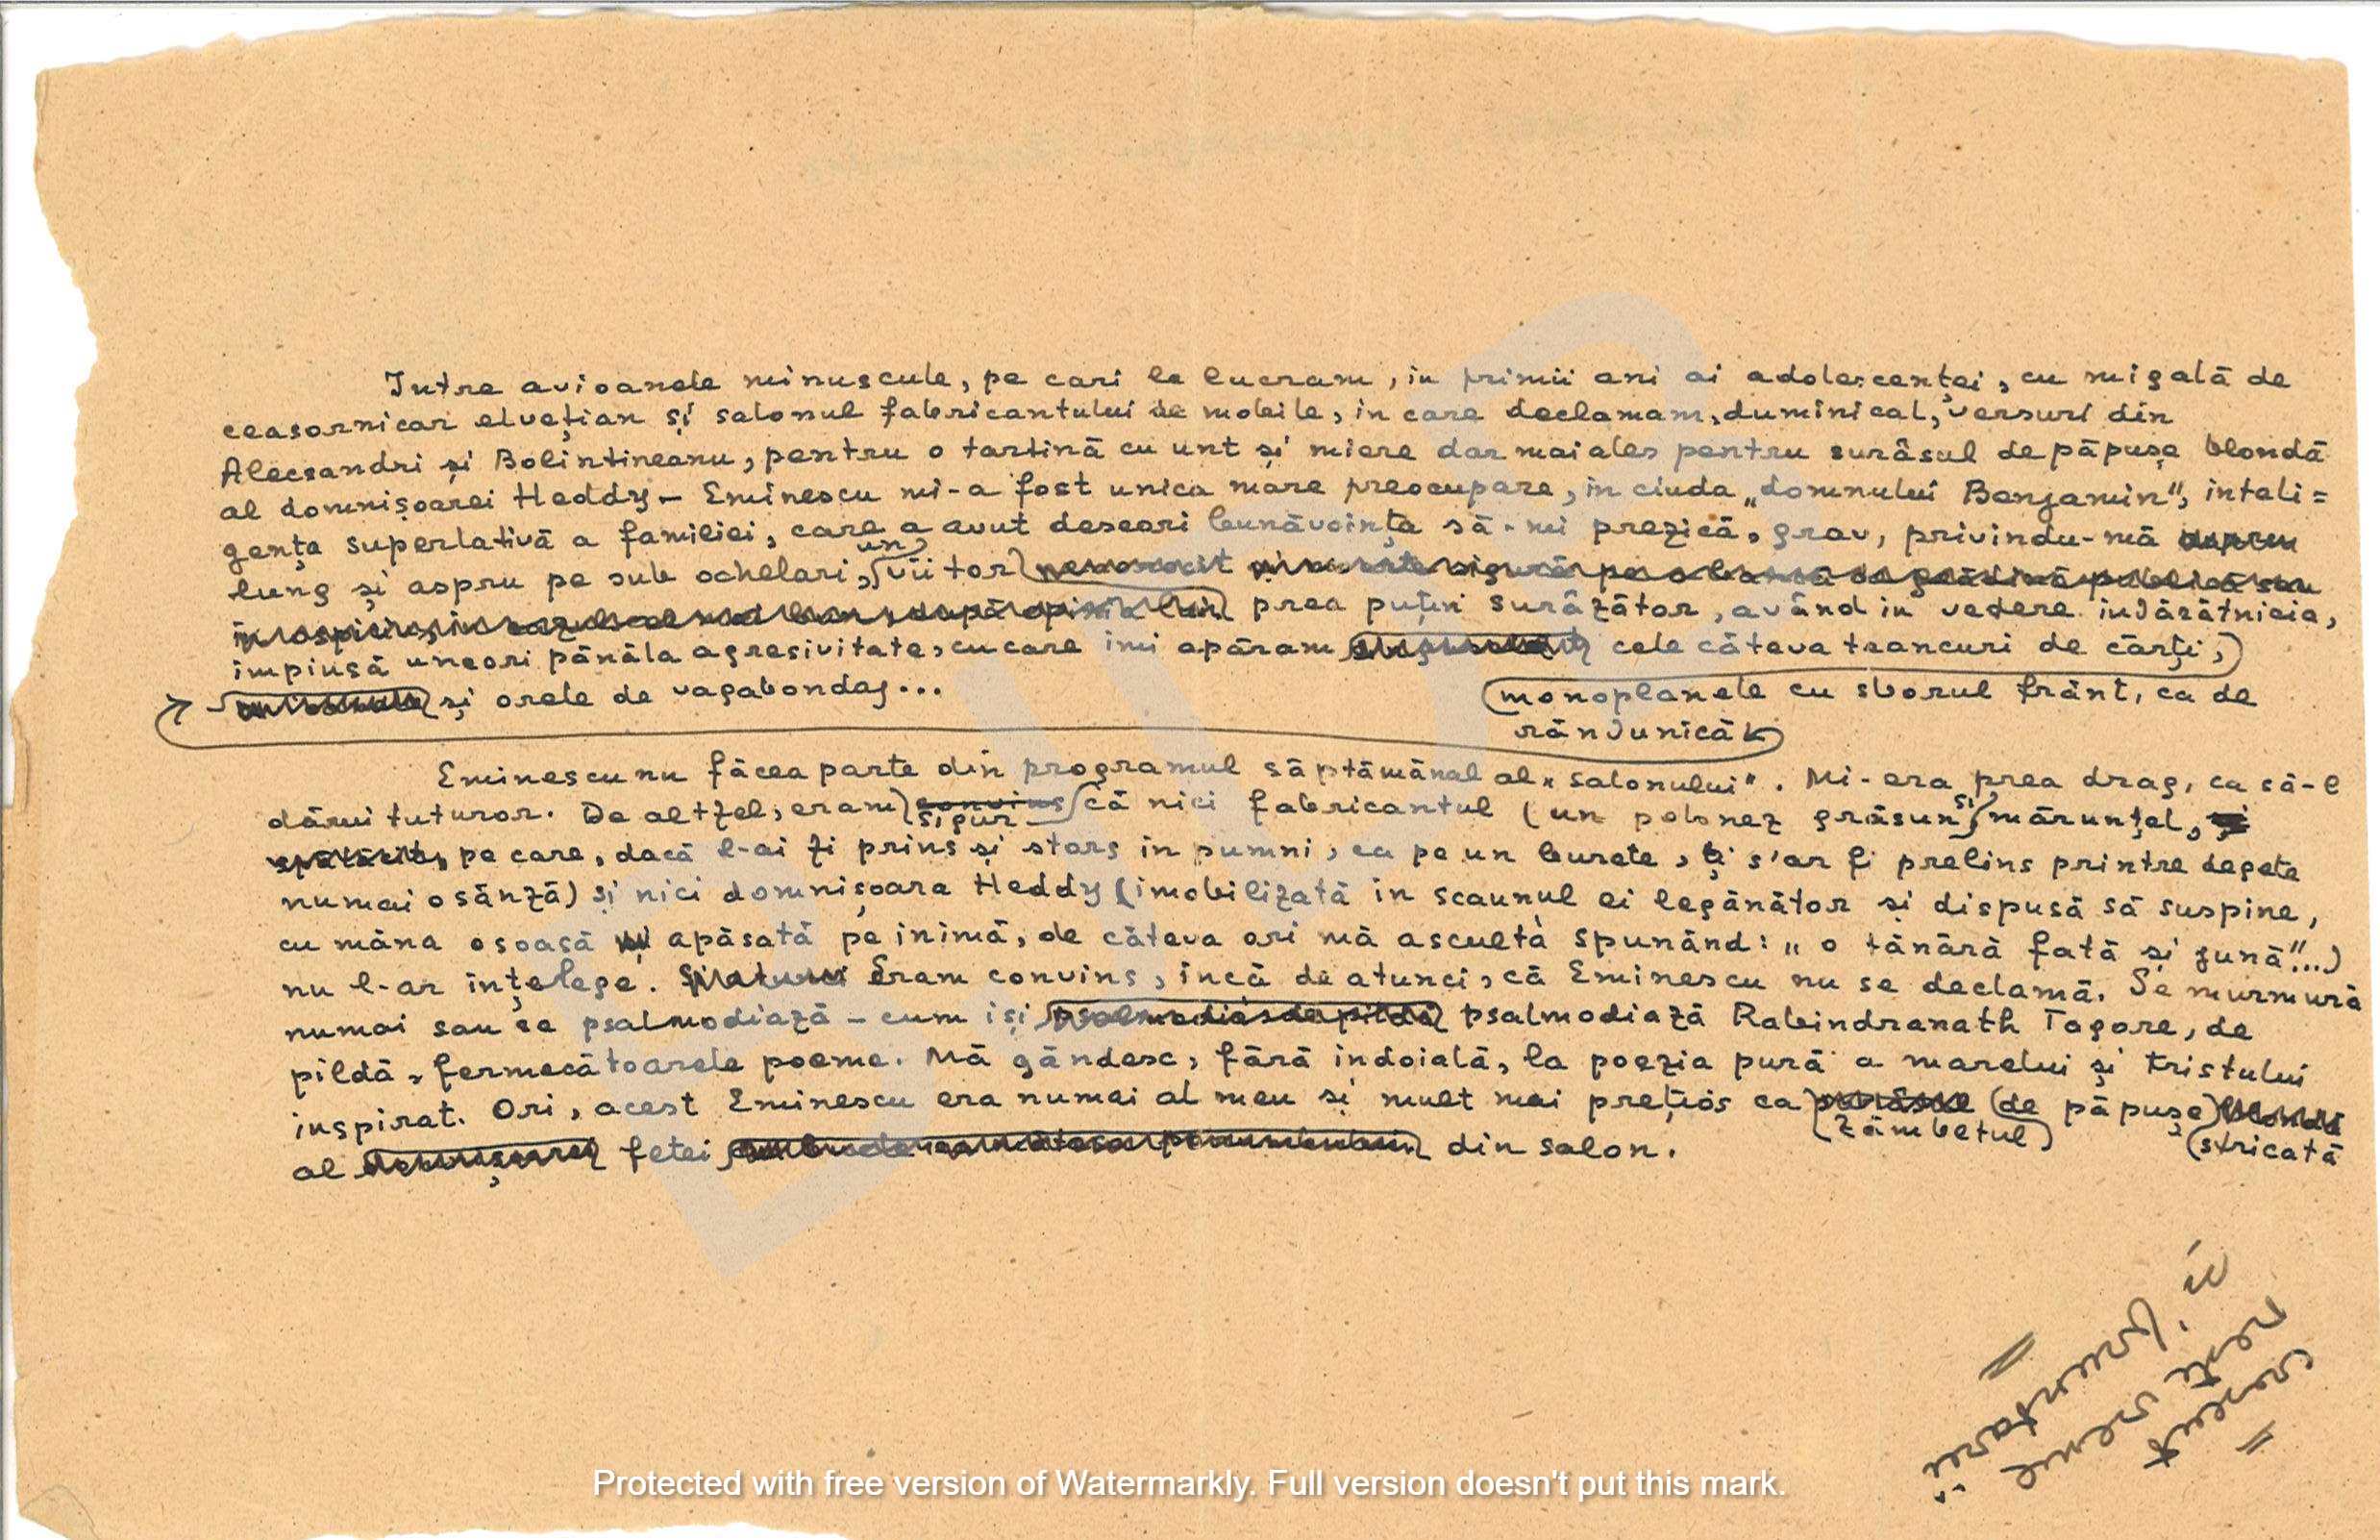 Intre avioanele minuscule, pe cari le lucram, in primii ani ai adolescenței, cu migală de
ceasornicar elvețian și salonul fabricantului de mobile, in care declamam, duminical, versuri din
Alecsandri și Bolintineanu, pentru o tartină cu unt și miere dar mai ales pentru surâsul de păpușe blondă
al domnișoarei Heddy – Eminescu mi-a fost unica mare preocupare, in ciuda „domnului Benjamin”, inteli=
gența superlativă a familiei, care a avut deseori bunăvoința să-mi prezică, grav, privindu-mă
lung și aspru pe sub ochelari, un viitor nenorocit
prea puțin surâzător, având in vedere indărătnicia,
impinsă uneori până la agresivitate, cu care imi apăram cele câteva teancuri de cărți,
și orele de vagabondaj...
monoplanele cu sborul frânt, ca de
rândunică
Eminescu nu făcea parte din programul săptămânal al „salonului”. Mi-era prea drag, ca să-l
dărui tuturor. De altfel, eram convins sigur că nici fabricantul (un polonez grăsun și mărunțel, și
pe care, dacă l-ai fi prins și stors in pumni, ca pe un burete, ți s'ar fi prelins printre degete
numai osânză) și nici domnișoara Heddy (imobilizată in scaunul ei legănător și dispusă să suspine,
cu mâna osoasă apăsată pe inimă, de câteva ori mă asculta spunând: „o tânără fată și jună”...)
nu l-ar ințelege. Eram convins, incă de atunci, că Eminescu nu se declamă. Se murmură
numai sau se psalmodiază – cum iși psalmodiază de pildă psalmodiază Rabindranath Tagore, de
pildă, fermecătoarele poeme. Mă gândesc, fără indoială, la poezia pură a marelui și tristului
inspirat. Ori, acest Eminescu era numai al meu și mult mai prețios ca surâsul zâmbetul de păpușe blondă stricată
al domnișoarei fetei din salon.
Protected with free version of Watermarkly. Full version doesn't put this mark.